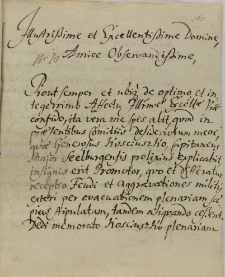 Illustrissime et Excellentissime Domine,
Amice Observandissime,
Prout semper et ubiq de optimo et in
tegerrimo Affectu Illrmae Excellae Vrae
confido, ita vera me spes alit quod in
praesentibus Comitiis desideriorum meor
quae Generosus Kosciuszko, Capitaneus
Major Seelburgensis prolixius explicabit
insignis erit Promotor, quo et
receptio Feudi et Aggravationes militu
per evacuationem plenariam sae
pius stipulatam, tandem aliquando cessent
Dedi memorato Kosciuszko plenariam